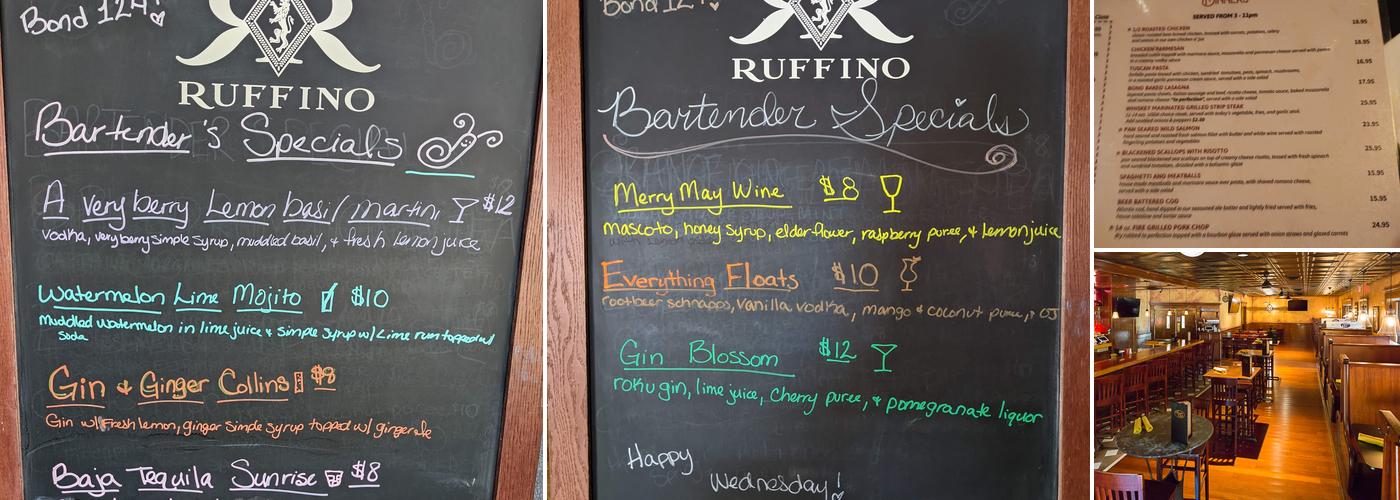 Bond 124!
RUFFINO
Bartender's Specials
A very berry Lemon basil martini $12
vodka, very berry simple syrup, muddled basil, & fresh lemon juice
Watermelon Lime Mojito $10
Muddled watermelon in lime juice & simple syrup w/ Lime rum topped w/
Soda
Gin & Ginger Collins $8
Gin w/ Fresh lemon, ginger simple syrup topped w/ gingerale
Baja Tequila Sunrise $8
Bond 12
RUFFINO
Bartender Specials
Merry May Wine $8
mascoto, honey syrup, elderflower, raspberry puree, & Lemon juice
Everything Floats $10
rootbeer schnapps, vanilla vodka, mango & coconut puree, & OJ
Gin Blossom $12
roku gin, lime juice, Cherry puree, & pomegranate liquor
Happy
Wednesday!
SERVED FROM 3 - 11pm
1/2 ROASTED CHICKEN 18.95
CHICKEN PARMESAN 18.95
TUSCAN PASTA 16.95
BOND BAKED LASAGNA 17.95
WHISKEY MARINATED GRILLED STRIP STEAK 25.95
PAN SEARED WILD SALMON 23.95
BLACKENED SCALLOPS WITH RISOTTO 25.95
SPAGHETTI AND MEATBALLS 15.95
BEER BATTERED COD 15.95
14 oz. FIRE GRILLED PORK CHOP 24.95